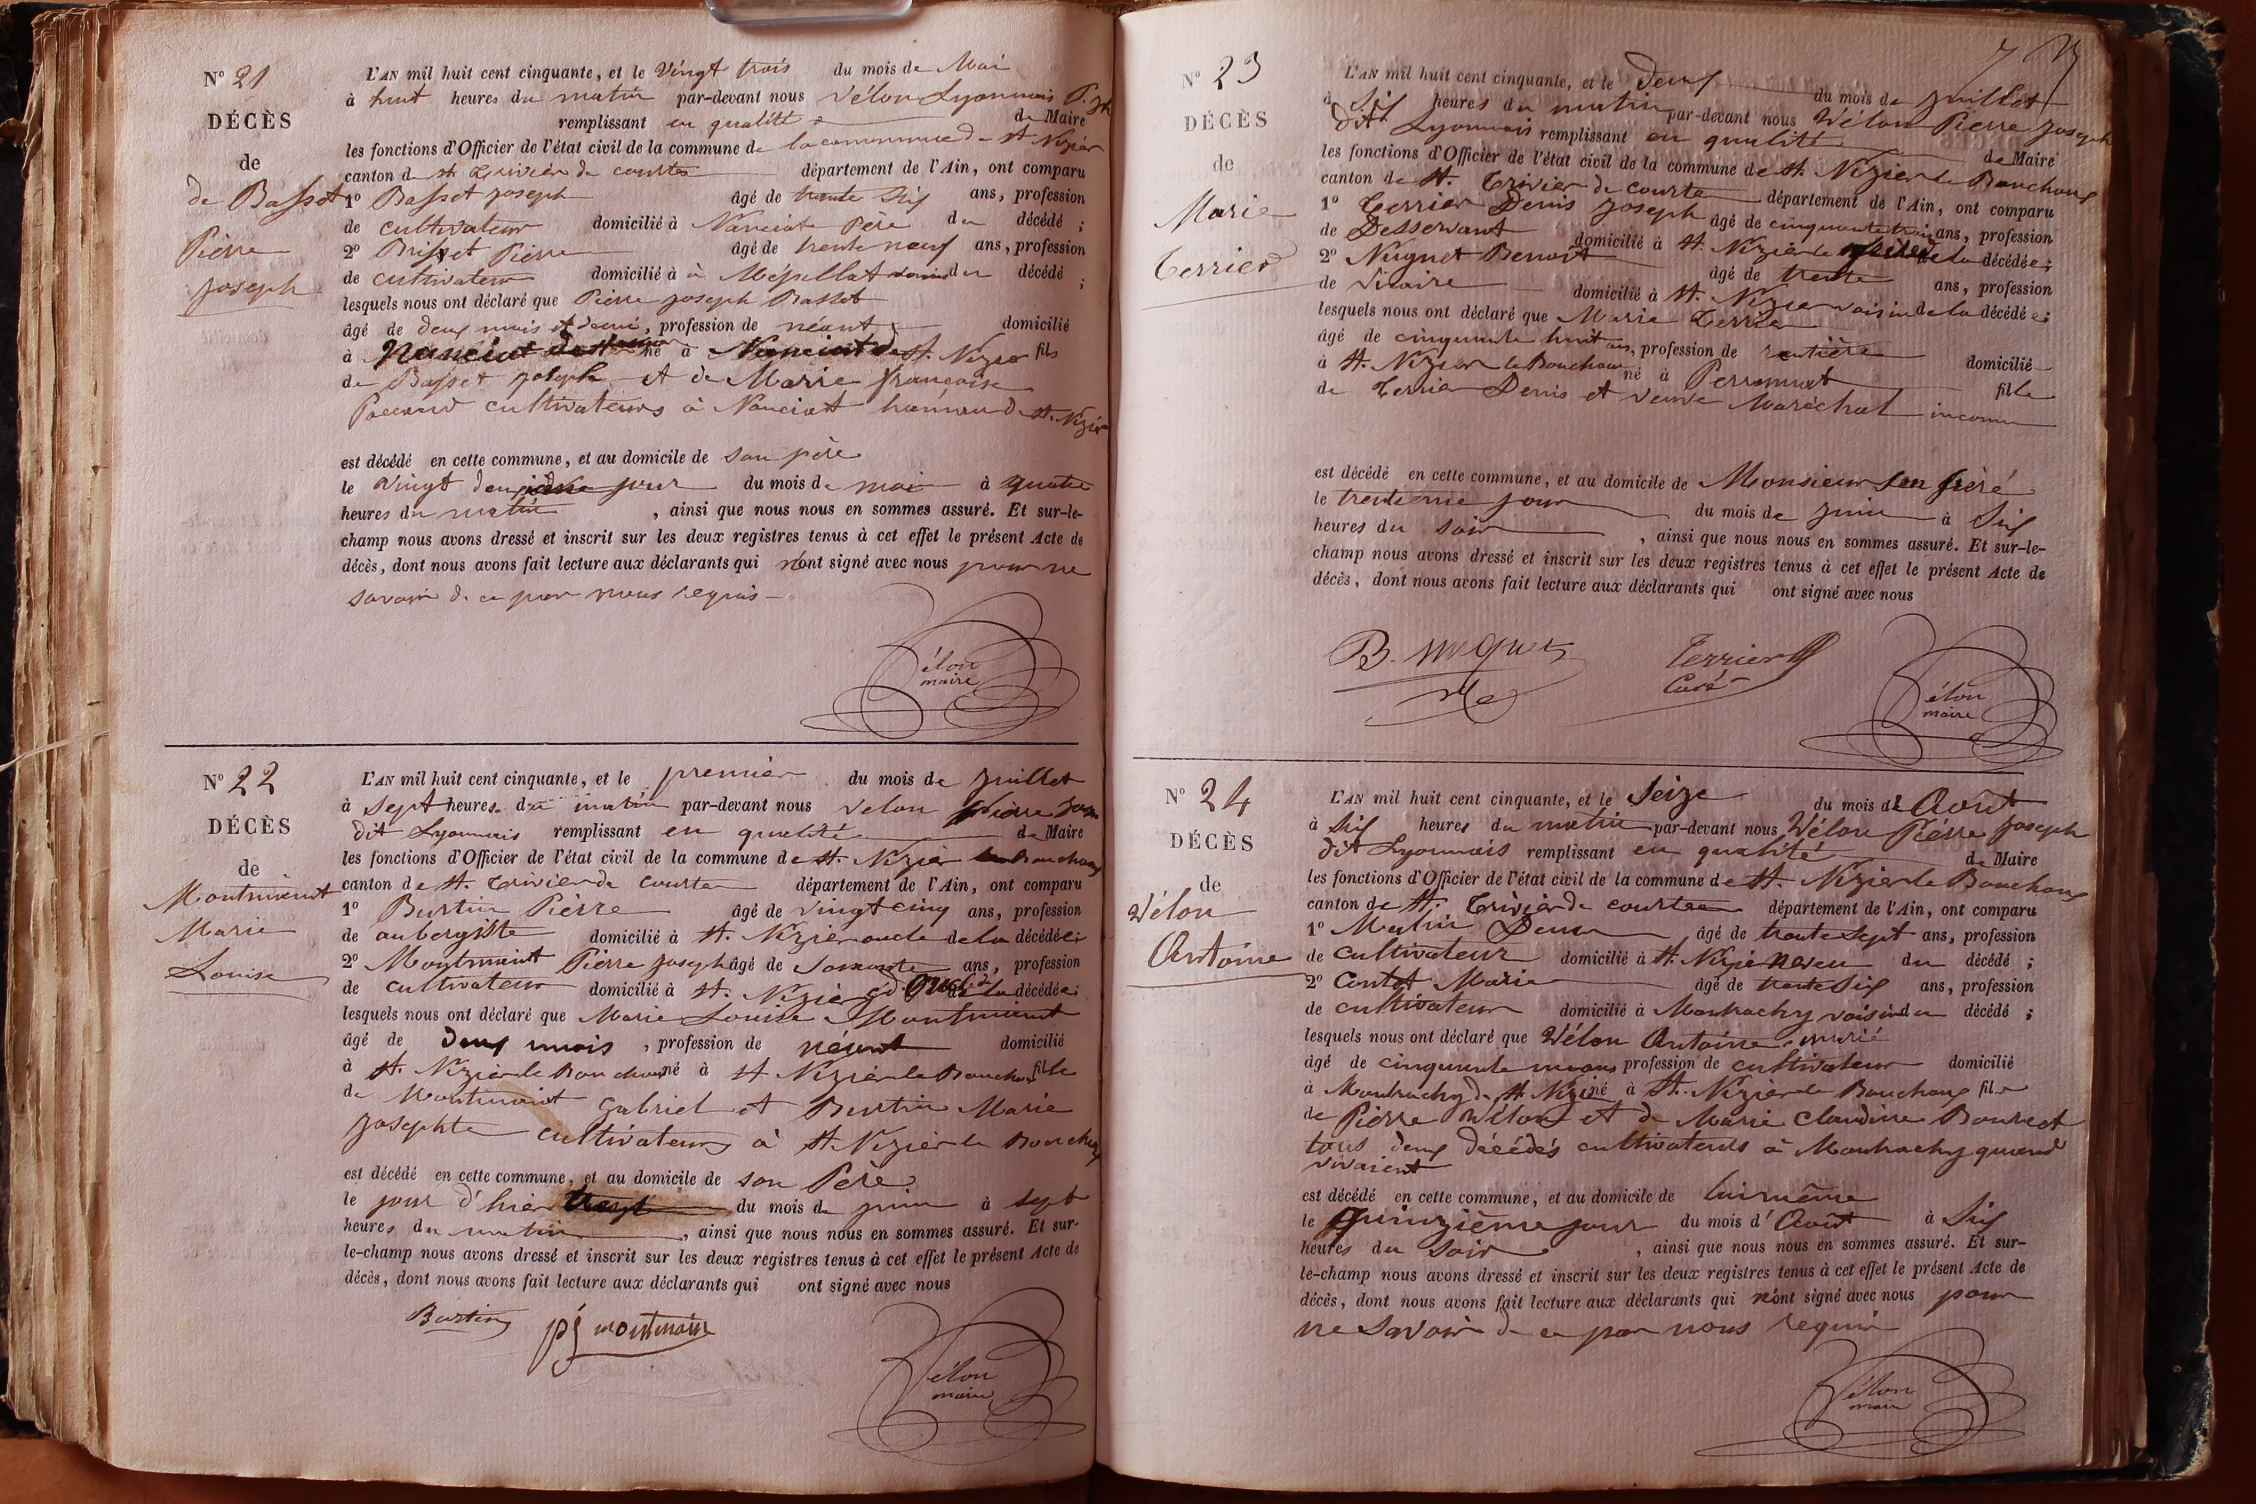 N° 21
DÉCÈS
de
de Basset
Pierre
Joseph
L'AN mil huit cent cinquante, et le Vingt trois du mois de Mai
à huit heures du matin par-devant nous Vélon Lyonnais P. Jh
remplissant en qualité de Maire
les fonctions d'Officier de l'état civil de la commune de la commune de St Nizier
canton de St Trivier de courtes département de l'Ain, ont comparu
1° Basset Joseph âgé de trente Six ans, profession
de cultivateur domicilié à Nanciat Père du décédé ;
2° Brisset Pierre âgé de trente neuf ans, profession
de cultivateur domicilié à à Mépillat voisin du décédé ;
lesquels nous ont déclaré que Pierre Joseph Basset
âgé de deux mois et demi, profession de néant domicilié
à Nanciat de St né à Nanciat de St. Nizier fils
de Basset Joseph et de Marie françoise
Pacoud cultivateurs à Nanciat hameau de St. Nizier
est décédé en cette commune, et au domicile de son père
le vingt deux jour du mois de mai à quatre
heures du matin, ainsi que nous nous en sommes assuré. Et sur-le-
champ nous avons dressé et inscrit sur les deux registres tenus à cet effet le présent Acte de
décès, dont nous avons fait lecture aux déclarants qui n'ont signé avec nous pour ne
savoir de ce par nous requis
Vélon
maire
N° 22
DÉCÈS
de
Montmient
Marie
Louise
L'AN mil huit cent cinquante, et le premier du mois de Juillet
à Sept heures du matin par-devant nous Velon Pierre Joseph
dit Lyonnais remplissant en qualité de Maire
les fonctions d'Officier de l'état civil de la commune de St. Nizier le Bouchoux
canton de St. Trivier de courtes département de l'Ain, ont comparu
1° Burtin Pierre âgé de vingt cinq ans, profession
de aubergiste domicilié à St. Nizier oncle de la décédée;
2° Montmient Pierre Joseph âgé de Soixante ans, profession
de cultivateur domicilié à St. Nizier de la décédée;
lesquels nous ont déclaré que Marie Louise Montmient
âgé de deux mois, profession de néant domicilié
à St. Nizier le Bouchoux né à St Nizier le Bouchoux fille
de Montmient Gabriel et Burtin Marie
Josephte cultivateurs à St. Nizier le Bouchoux
est décédé en cette commune, et au domicile de son Père
le jour d'hier trente du mois de juin à sept
heures du matin, ainsi que nous nous en sommes assuré. Et sur-
le-champ nous avons dressé et inscrit sur les deux registres tenus à cet effet le présent Acte de
décès, dont nous avons fait lecture aux déclarants qui ont signé avec nous
Burtin
Vélon
maire
N° 23
DÉCÈS
de
Marie
Terrier
L'AN mil huit cent cinquante, et le Deux du mois de Juillet
à Six heures du matin par-devant nous Vélon Pierre Joseph
dit Lyonnais remplissant en qualité de Maire
les fonctions d'Officier de l'état civil de la commune de St. Nizier le Bouchoux
canton de St. Trivier de courtes département de l'Ain, ont comparu
1° Terrier Denis Joseph âgé de cinquante trois ans, profession
de Desservant domicilié à St. Nizier le frère de la décédée;
2° Nuguet Benoit âgé de trente ans, profession
de Vicaire domicilié à St. Nizier voisin de la décédée;
lesquels nous ont déclaré que Marie Terrier
âgé de cinquante huit ans, profession de rentière domicilié
à St. Nizier le Bouchoux né à Perronnat fille
de Terrier Denis et veuve Maréchal inconnu
est décédé en cette commune, et au domicile de Monsieur Son frère
le trentième jour du mois de juin à Six
heures du soir, ainsi que nous nous en sommes assuré. Et sur-le-
champ nous avons dressé et inscrit sur les deux registres tenus à cet effet le présent Acte de
décès, dont nous avons fait lecture aux déclarants qui ont signé avec nous
B. Nuguet
Terrier
Curé
Vélon
maire
N° 24
DÉCÈS
de
Vélon
Antoine
L'AN mil huit cent cinquante, et le Seize du mois d'Août
à Six heures du matin par-devant nous Vélon Pierre Joseph
dit Lyonnais remplissant en qualité de Maire
les fonctions d'Officier de l'état civil de la commune de St. Nizier le Bouchoux
canton de St. Trivier de courtes département de l'Ain, ont comparu
1° Denis âgé de trente Sept ans, profession
de cultivateur domicilié à St. Nizier neveu du décédé ;
2° Contet Marie âgé de trente Six ans, profession
de cultivateur domicilié à Montrachy voisin du décédé ;
lesquels nous ont déclaré que Vélon Antoine marié
âgé de cinquante ans profession de cultivateur domicilié
à Montrachy de St. Nizier né à St. Nizier le Bouchoux fils
de Pierre Vélon et de Marie Claudine Bourcet
tous deux décédés cultivateurs à Montrachy quand
vivaient
est décédé en cette commune, et au domicile de lui même
le quinzième jour du mois d'Août à Six
heures du soir, ainsi que nous nous en sommes assuré. Et sur-
le-champ nous avons dressé et inscrit sur les deux registres tenus à cet effet le présent Acte de
décès, dont nous avons fait lecture aux déclarants qui n'ont signé avec nous pour
ne Savoir de ce par nous requis
Vélon
maire